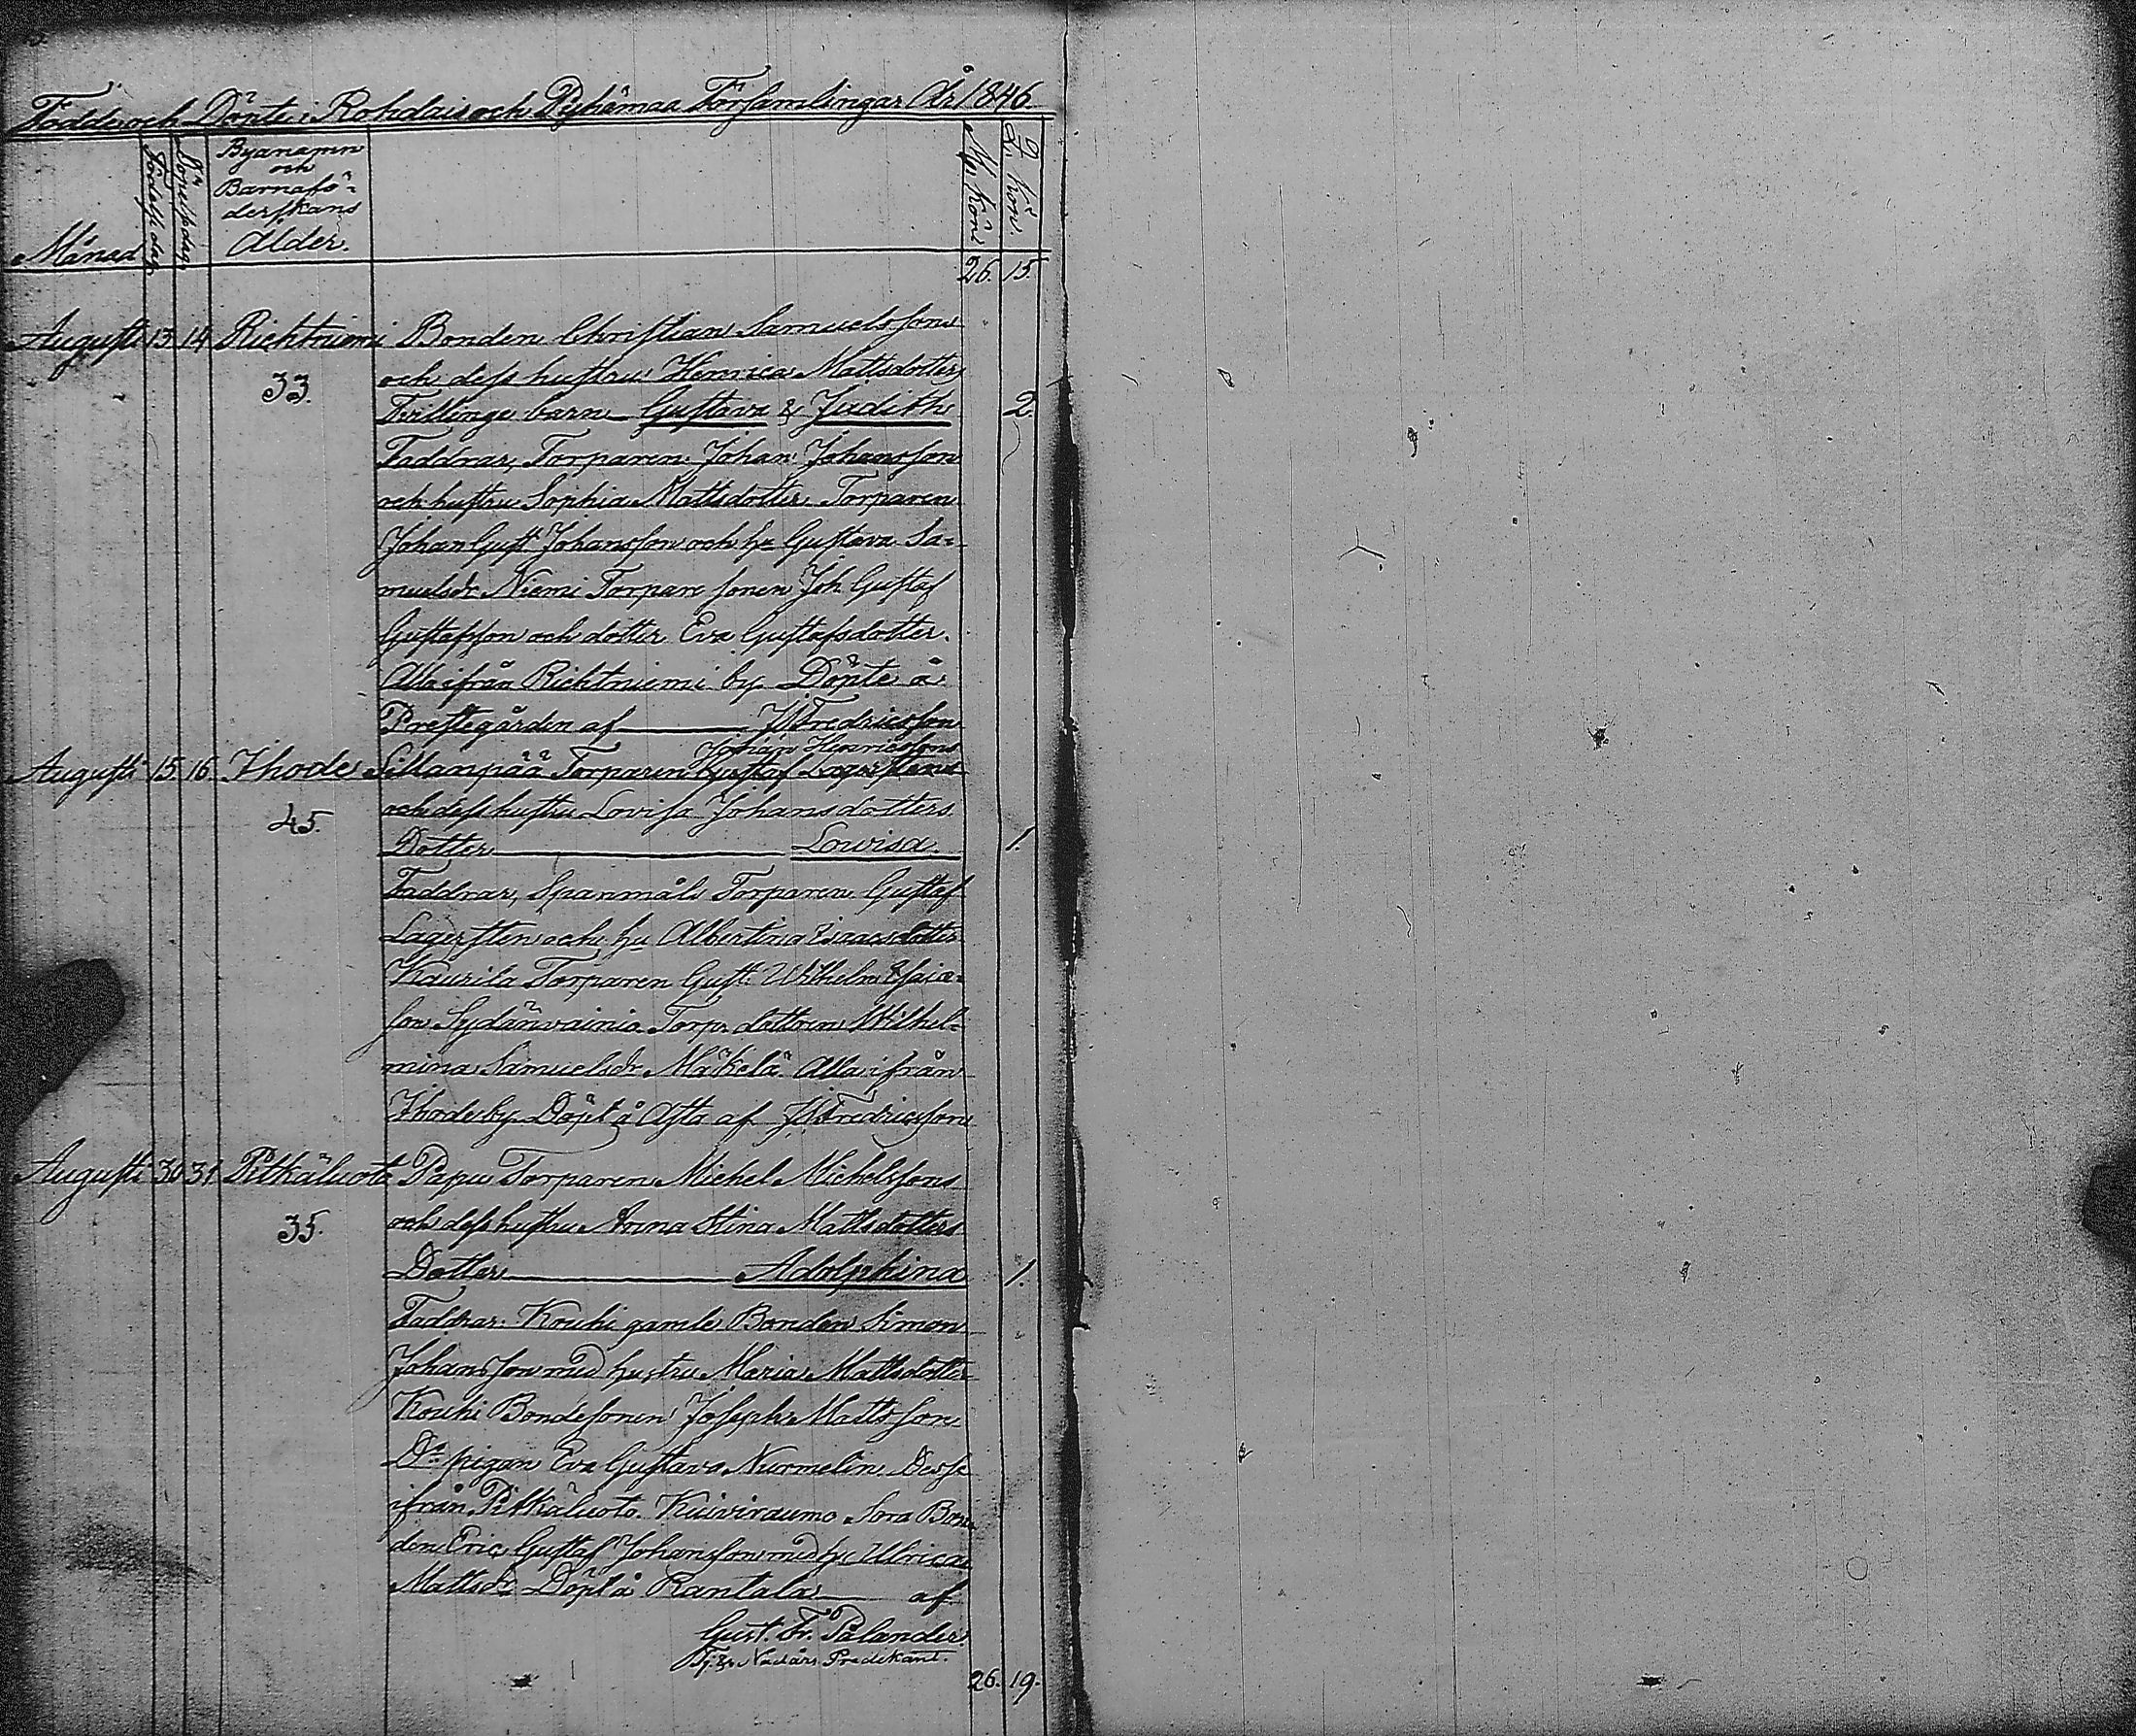 Födde och Döpte i Rohdais och Pyhämaa Församlingar År 1846.
Månad
Födelsedag
Döpelsedag
Byanamn
och
Barnafö-
derskans
Ålder.
M. kön
Q. kön.
26. 15.
Augusti 13 14 Richtniemi Bonden Christian Samuelssons
och dess hustru Henrica Mattsdotters
33.
Tvillinge barn Gustava & Judith 2
Faddrar, Torparen Johan Johansson
och hustru Sophia Mattsdotter Torparen
Johan Gust. Johansson och hu Gustava Sa-
muelsdr Niemi Torpare sonen Joh. Gustaf
Gustafsson och dotter Eva Gustafsdotter.
Alla ifrån Richtniemi by Döpte å
Prestegården af Fredricsson
Johan Henricssons
Augusti 15 16 Ihode Sillanpää Torparen Gustaf Lagerstens
och dess hustru Lovisa Johansdotters
45.
Dotter Lowisa. 1.
Faddrar, Spanmåls Torparen Gustaf
Lagersten och hu Albertina Isaacsdotter
Kaurila Torparen Gust. Wilhelm Esaias-
son Sydänvainio Torp. dottren Wilhel-
mina Samuelsdr Mäkelä Alla ifrån
Ihode by Döpt å af Fredricsson
Augusti 30 31 Pitkäluoto Papu Torparen Michel Michelssons
och dess hustru Anna Stina Mattsdotters
35.
Dotter Adolphina 1.
Faddrar. Kouhi gamle Bonden Simon
Johansson med hustru Maria Mattsdotter
Kouhi Bondesonen Joseph Mattsson
Do pigan Eva Gustava Nurmelin Desse
ifrån Pitkäluoto. Kuivirauma Sora Bon-
den Eric Gustaf Johansson med hu Ulrica
Mattsdr Döpt å Rantala af
Gust. Fr. Pålander.
Nådårs Predikant.
26. 19.